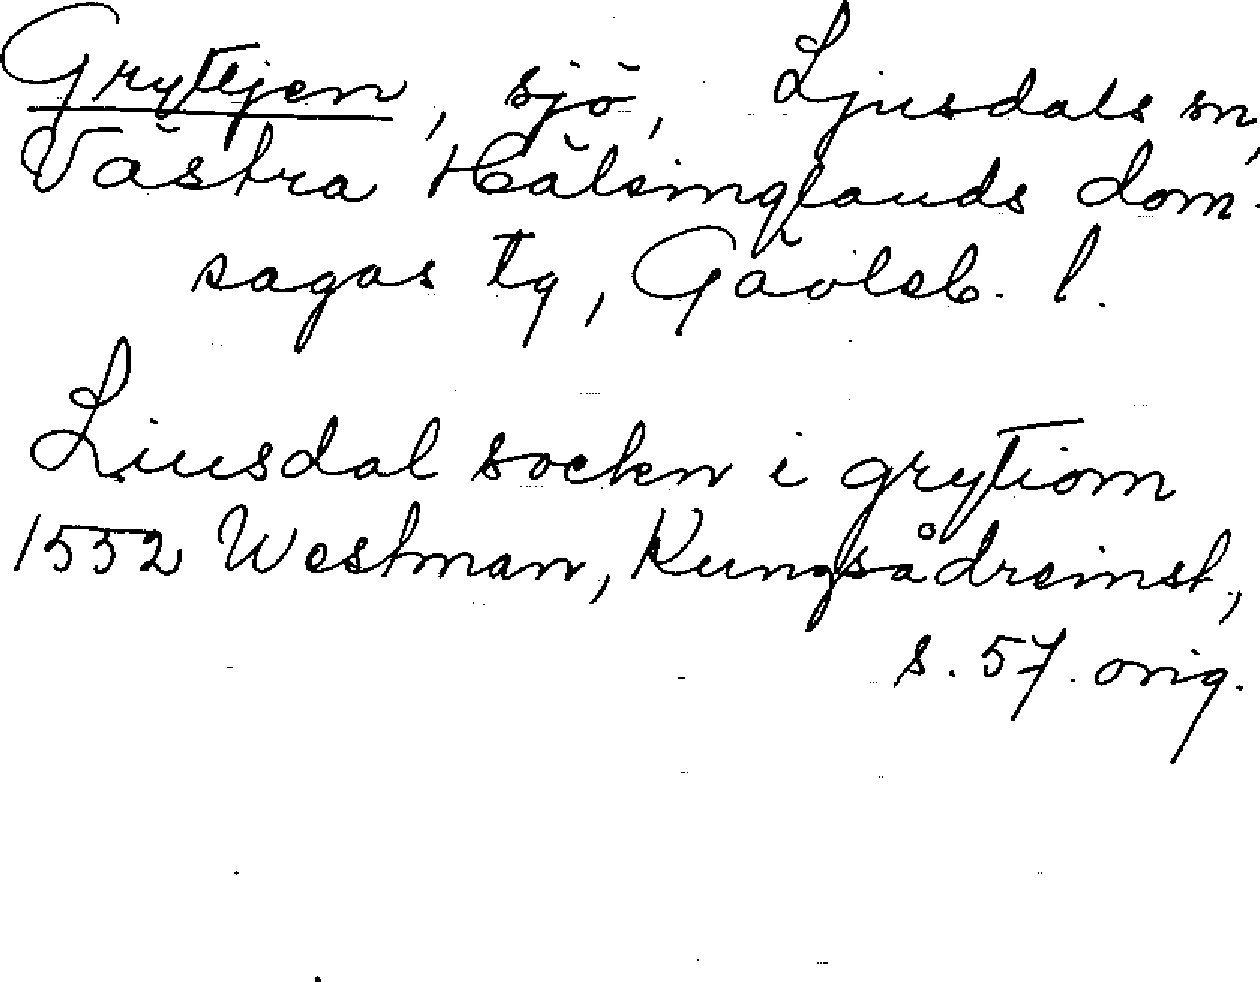 Gryttjen, sjö, Ljusdals sn,
Västra Hälsinglands dom-
sagas tg, Gävleb. l.
Liusdal sockn i grytiom
1552 Westman, Kungsådreinst,
s. 57. orig.